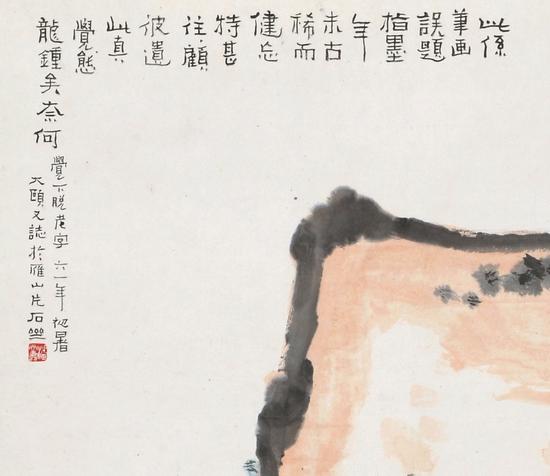 此係
筆画
誤題
指墨
年
未古
稀而
健忘
特甚
往々顧
彼遺
此真
覺態
龍鍾矣奈何
覺下脱老字 六一年初暑
大頤又誌於雁山片石